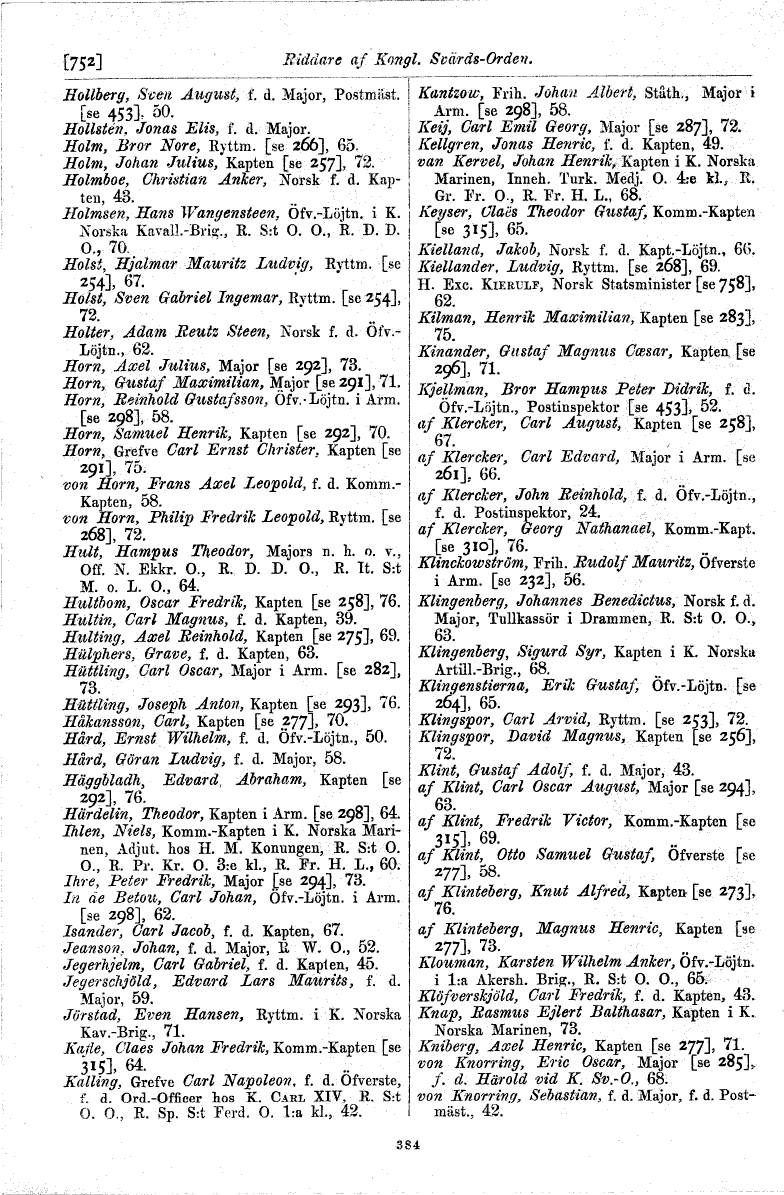 [752]
Riddare af Kongl. Svärds-Orden.
Hollberg, Sven August, f. d. Major, Postmäst.
[se 453], 50.
Hollstén, Jonas Elis, f. d. Major.
Holm, Bror Nore, Ryttm. [se 266], 65.
Holm, Johan Julius, Kapten [se 257], 72.
Holmboe, Christian Anker, Norsk f. d. Kap-
ten, 43.
Holmsen, Hans Wangensteen, Öfv.-Löjtn. i K.
Norska Kavall.-Brig., R. S:t O. O., R. D. D.
O., 70.
Holst, Hjalmar Mauritz Ludvig, Ryttm. [se
254], 67.
Holst, Sven Gabriel Ingemar, Ryttm. [se 254],
72.
Holter, Adam Reutz Steen, Norsk f. d. Öfv.-
Löjtn., 62.
Horn, Axel Julius, Major [se 292], 73.
Horn, Gustaf Maximilian, Major [se 291], 71.
Horn, Reinhold Gustafsson, Öfv.-Löjtn. i Arm.
[se 298], 58.
Horn, Samuel Henrik, Kapten [se 292], 70.
Horn, Grefve Carl Ernst Christer, Kapten [se
291], 75.
von Horn, Frans Axel Leopold, f. d. Komm.-
Kapten, 58.
von Horn, Philip Fredrik Leopold, Ryttm. [se
268], 72.
Hult, Hampus Theodor, Majors n. h. o. v.,
Off. N. Ekkr. O., R. D. D. O., R. It. S:t
M. o. L. O., 64.
Hultbom, Oscar Fredrik, Kapten [se 258], 76.
Hultin, Carl Magnus, f. d. Kapten, 39.
Hulting, Axel Reinhold, Kapten [se 275], 69.
Hülphers, Grave, f. d. Kapten, 63.
Hüttling, Carl Oscar, Major i Arm. [se 282],
73.
Hüttling, Joseph Anton, Kapten [se 293], 76.
Håkansson, Carl, Kapten [se 277], 70.
Hård, Ernst Wilhelm, f. d. Öfv.-Löjtn., 50.
Hård, Göran Ludvig, f. d. Major, 58.
Häggbladh, Edvard Abraham, Kapten [se
292], 76.
Härdelin, Theodor, Kapten i Arm. [se 298], 64.
Ihlen, Niels, Komm.-Kapten i K. Norska Mari-
nen, Adjut. hos H. M. Konungen, R. S:t O.
O., R. Pr. Kr. O. 3:e kl., R. Fr. H. L., 60.
Ihre, Peter Fredrik, Major [se 294], 73.
In de Betou, Carl Johan, Öfv.-Löjtn. i Arm.
[se 298], 62.
Isander, Carl Jacob, f. d. Kapten, 67.
Jeanson, Johan, f. d. Major, R W. O., 52.
Jegerhjelm, Carl Gabriel, f. d. Kapten, 45.
Jegerschjöld, Edvard Lars Maurits, f. d.
Major, 59.
Jörstad, Even Hansen, Ryttm. i K. Norska
Kav.-Brig., 71.
Kafle, Claes Johan Fredrik, Komm.-Kapten [se
315], 64.
Kalling, Grefve Carl Napoleon, f. d. Öfverste,
f. d. Ord.-Officer hos K. CARL XIV, R. S:t
O. O., R. Sp. S:t Ferd. O. 1:a kl., 42.
Kantzow, Frih. Johan Albert, Ståth., Major i
Arm. [se 298], 58.
Keij, Carl Emil Georg, Major [se 287], 72.
Kellgren, Jonas Henric, f. d. Kapten, 49.
van Kervel, Johan Henrik, Kapten i K. Norska
Marinen, Inneh. Turk. Medj. O. 4:e kl., R.
Gr. Fr. O., R. Fr. H. L., 68.
Keyser, Claës Theodor Gustaf, Komm.-Kapten
[se 315], 65.
Kielland, Jakob, Norsk f. d. Kapt.-Löjtn., 66.
Kiellander, Ludvig, Ryttm. [se 268], 69.
H. EXC. KIERULF, Norsk Statsminister [se 758],
62.
Kilman, Henrik Maximilian, Kapten [se 283],
75.
Kinander, Gustaf Magnus Cæsar, Kapten [se
296], 71.
Kjellman, Bror Hampus Peter Didrik, f. d.
Öfv.-Löjtn., Postinspektor [se 453], 52.
af Klercker, Carl August, Kapten [se 258],
67.
af Klercker, Carl Edvard, Major i Arm. [se
261], 66.
af Klercker, John Reinhold, f. d. Öfv.-Löjtn.,
f. d. Postinspektor, 24.
af Klercker, Georg Nathanael, Komm.-Kapt.
[se 310], 76.
Klinckowström, Frih. Rudolf Mauritz, Öfverste
i Arm. [se 232], 56.
Klingenberg, Johannes Benedictus, Norsk f. d.
Major, Tullkassör i Drammen, R. S:t O. O.,
63.
Klingenberg, Sigurd Syr, Kapten i K. Norska
Artill.-Brig., 68.
Klingenstierna, Erik Gustaf, Öfv.-Löjtn. [se
264], 65.
Klingspor, Carl Arvid, Ryttm. [se 253], 72.
Klingspor, David Magnus, Kapten [se 256],
72.
Klint, Gustaf Adolf, f. d. Major, 43.
af Klint, Carl Oscar August, Major [se 294],
63.
af Klint, Fredrik Victor, Komm.-Kapten [se
315], 69.
af Klint, Otto Samuel Gustaf, Öfverste [se
277], 58.
af Klinteberg, Knut Alfred, Kapten [se 273],
76.
af Klinteberg, Magnus Henric, Kapten [se
277], 73.
Klouman, Karsten Wilhelm Anker, Öfv.-Löjtn.
i 1:a Akersh. Brig., R. S:t O. O., 65.
Klöfverskjöld, Carl Fredrik, f. d. Kapten, 43.
Knap, Rasmus Ejlert Balthasar, Kapten i K.
Norska Marinen, 73.
Kniberg, Axel Henric, Kapten [se 277], 71.
von Knorring, Eric Oscar, Major [se 285],
f. d. Härold vid K. Sv.-O., 68.
von Knorring, Sebastian, f. d. Major, f. d. Post-
mäst., 42.
384